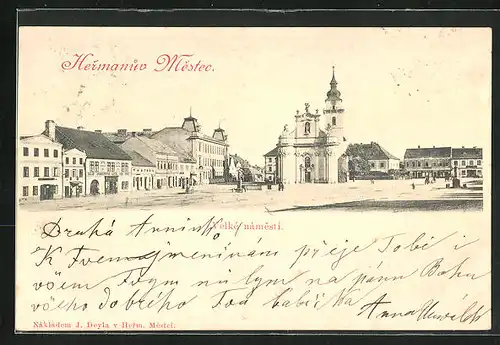 Heřmanův Městec.
Velké náměstí.
Drahá Anninko
K Tvem jmeninám přeje Tobě i
všem Tvym milym na pánu Bohu
všeho dobrého Tvá babička
Anna
Nákladem J. Deyla v Heřm. Městci.